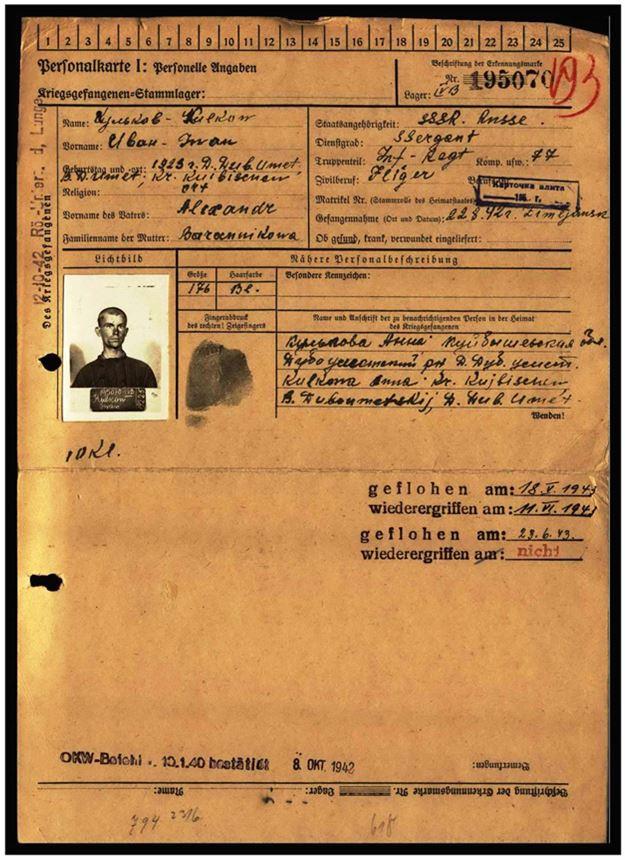 1 2 3 4 5 6 7 8 9 10 11 12 13 14 15 16 17 18 19 20 21 22 23 24 25
Personalkarte I: Personelle Angaben
Kriegsgefangenen-Stammlager:
Beschriftung der Erkennungsmarke
Nr. 195070
Lager: IV B
193
Des Kriegsgefangenen
12-10-42 Rö-Unter. d. Lunge
Name: Кульков - Kulkow
Vorname: Иван - Iwan
Geburtstag und -ort: 1923 г. Д. Дуб. Umet
D. Umet, Kr. Kuibischew
Religion: ort
Vorname des Vaters: Alexandr
Familienname der Mutter: Barannikowa
Staatsangehörigkeit: SSSR. Russe.
Dienstgrad: SSergant
Truppenteil: Inf-Regt Komp. usw.: 77
Zivilberuf: Fliger
Карточка взята
Matrikel Nr. (Stammrolle des Heimatstaates)
Gefangennahme (Ort und Datum): 22.8.42 г. Zimljansk
Ob gesund, krank, verwundet eingeliefert:
Lichtbild
Nähere Personalbeschreibung
Größe Haarfarbe Besondere Kennzeichen:
176 Bl.
Fingerabdruck
des rechten! Zeigefingers
Name und Anschrift der zu benachrichtigenden Person in der Heimat
des Kriegsgefangenen
Кулькова Анна Куйбышевская Обл.
Дубоуметский рн Д. Дуб. умет.
Kulkowa Anna Kr. Kujbischew
B. Duboumetskij D. Dub. Umet.
Wenden!
Kulkow
10 Kl.
geflohen am: 18.V.1943
wiederergriffen am: 11.VI.1943
geflohen am: 23.6.43.
wiederergriffen am: nicht
OKW-Befehl v. 10.1.40 bestätigt 8. OKT. 1942
Bemerkungen:
Beschriftung der Erkennungsmarke Nr. Lager: Name:
794 2216
618